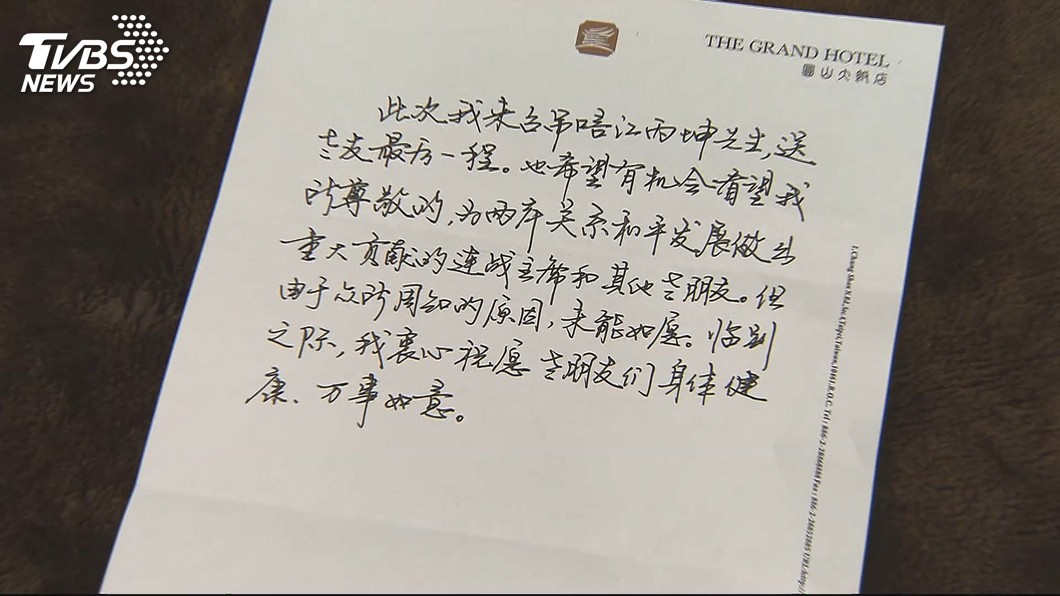 TVBS
NEWS
THE GRAND HOTEL
圓山大飯店
此次我来台吊唁江丙坤先生,送
老友最后一程。也希望有机会看望我
所尊敬的,为两岸关系和平发展做出
重大贡献的连战主席和其他老朋友。但
由于众所周知的原因,未能如愿。临别
之际,我衷心祝愿老朋友们身体健
康、万事如意。